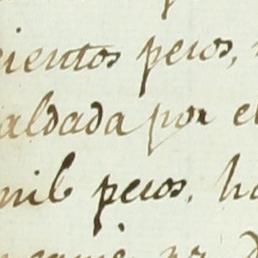 cientos pesos,
aldada por el
mil pesos, ha